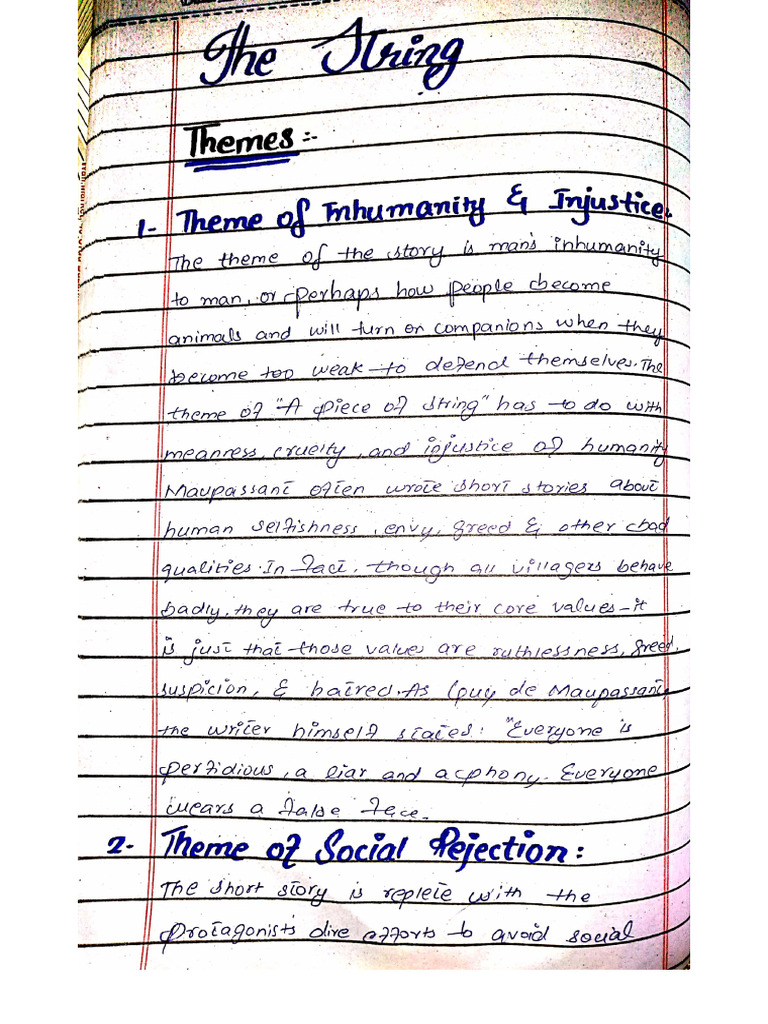 The String
Themes:-
1- Theme of Inhumanity & Injustice:
The theme of the story is man's inhumanity
to man, or perhaps how people become
animals and will turn on companions when they
become too weak to defend themselves. The
theme of "A piece of string" has to do with
meanness, cruelty, and injustice of humanity
Maupassant often wrote short stories about
human selfishness, envy, greed & other bad
qualities. In fact, though all villagers behave
badly, they are true to their core values - it
is just that those values are ruthlessness, greed,
suspicion, & hatred. As Guy de Maupassant,
the writer himself states: "Everyone is
perfidious, a liar and a phony. Everyone
wears a false face.
2- Theme of Social Rejection:
The short story is replete with the
Protagonist's dire efforts to avoid social